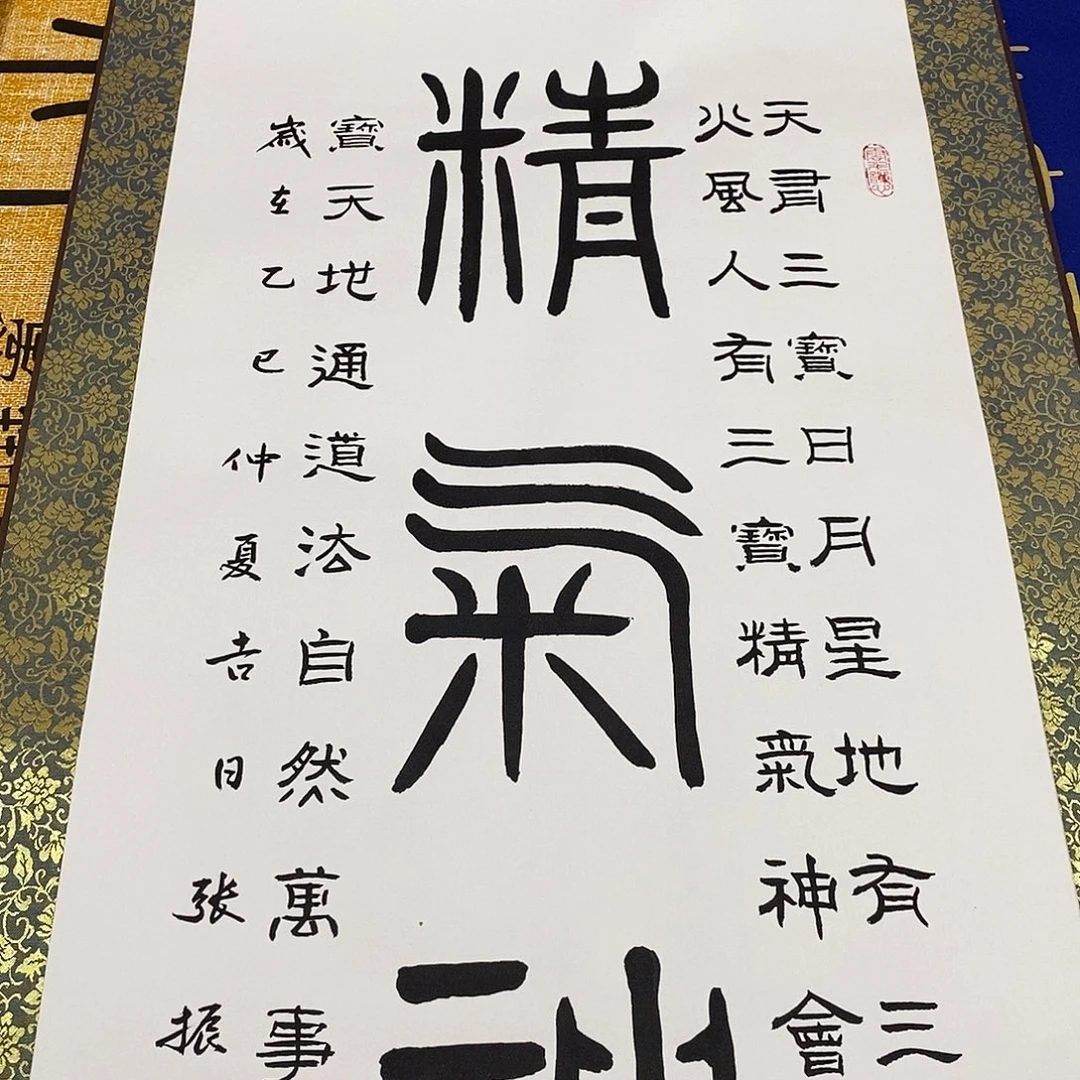 天有三寶日月星地有三
火風人有三寶精氣神會
精氣神
寶天地通道法自然萬事
歲在乙巳仲夏吉日張振